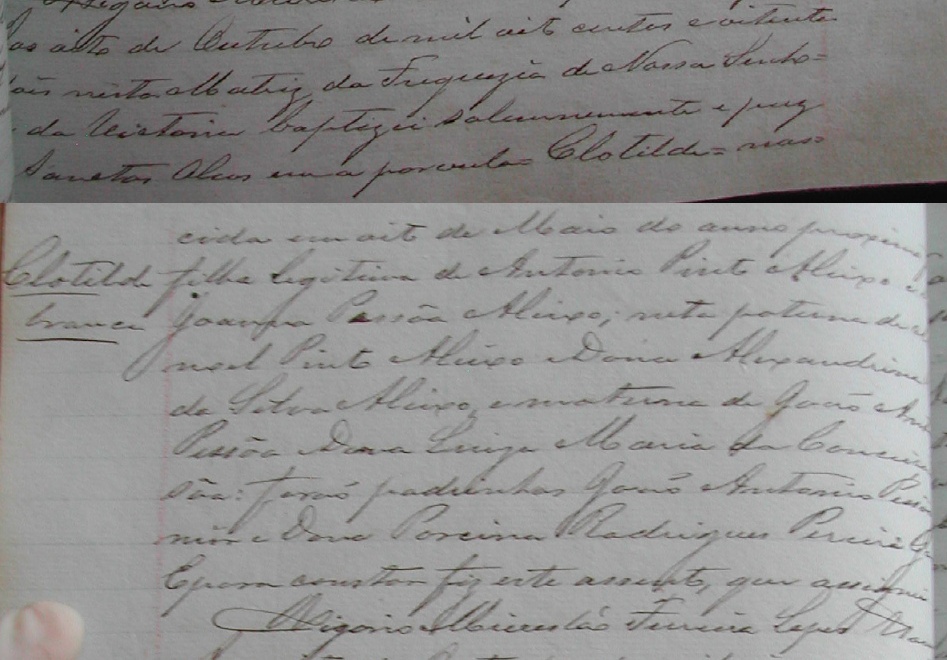 os oito de Outubro de mil oito centos e oitenta
ois nesta Matriz da Freguezia de Nossa Senho=
da Victoria baptizei solemnemente e puz
Sanctos Oleos em a parvula Clotilde= nas=
cida em oito de Maio do anno proximo
Clotilde filha legitima de Antonio Pinto Aleixo e
branca Joanna Pessôa Aleixo; neta paterna de
noel Pinto Aleixo e Dona Alexandrina
da Silva Aleixo, e materna de João
Pessôa e Dona Luiza Maria da Concei
são: forão padrinhos João Antonio Pessôa
nior e Dona Porcina Rodrigues Pereira
E para constar fiz este assento, que assino
Vigario Ferreira Lopes